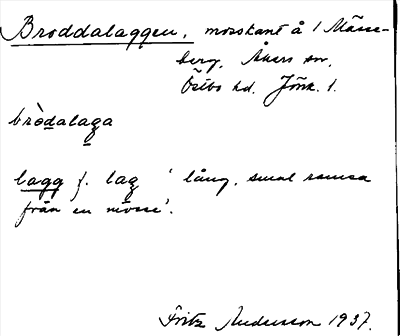 Broddalaggen, mosskant å / Mässe-
berg, Åkers sn,
Östbo hd. Jönk. l.
bròdalaga
lagg f. lag 'lång, smal remsa
från en mosse'.
Fritz Andersson 1937.